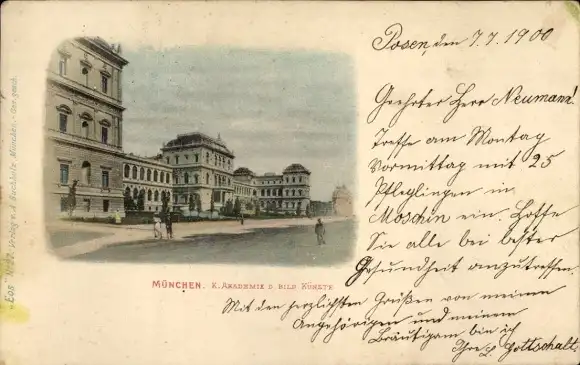 Posen, den 7.7.1900
Geehrter Herr Neumann!
Treffe am Montag
Vormittag mit 25
Pfleglingen in
Moschin ein. Hoffe
Sie alle bei bester
Gesundheit anzutreffen.
Mit den herzlichsten Grüßen von meinen
Angehörigen und meinem
Bräutigam bin ich
Ihre L. Gottschalk
MÜNCHEN. K. AKADEMIE D. BILD KÜNSTE
Verlag v. München